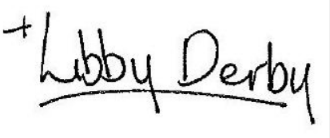 +Libby Derby